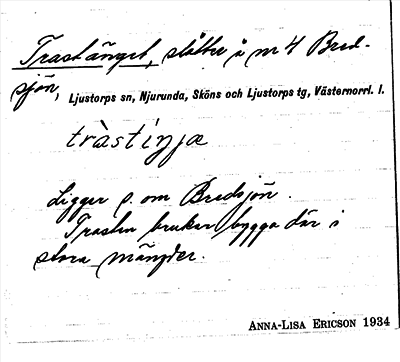 Trastänget, slåtter å nr 4 Bred-
sjön, Ljustorps sn, Njurunda, Sköns och Ljustorps tg, Västernorrl. l.
tràstiŋja
Ligger ö. om Bredsjön.
Trasten brukar bygga där i
stora mängder.
ANNA-LISA ERICSON 1934